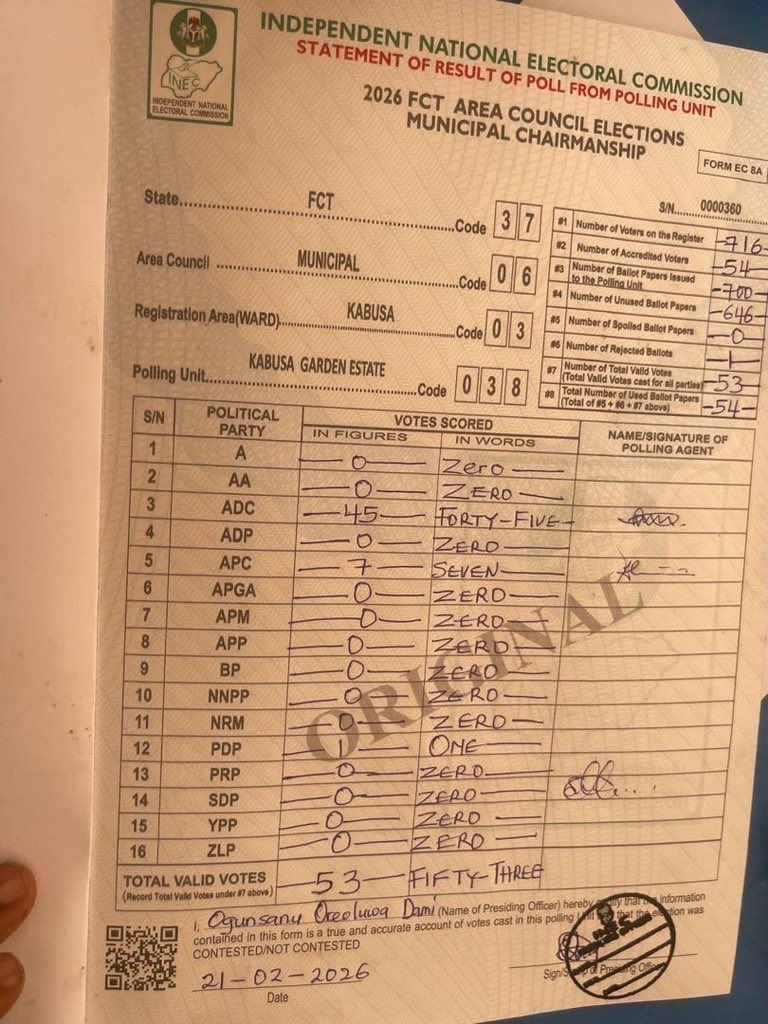 INEC
INDEPENDENT NATIONAL
ELECTORAL COMMISSION
INDEPENDENT NATIONAL ELECTORAL COMMISSION
STATEMENT OF RESULT OF POLL FROM POLLING UNIT
2026 FCT AREA COUNCIL ELECTIONS
MUNICIPAL CHAIRMANSHIP
FORM EC 8A
S/N......... 0000360
State................FCT................Code 37
Area Council ................MUNICIPAL................Code 06
Registration Area(WARD)................KABUSA................Code 03
Polling Unit......KABUSA GARDEN ESTATE......Code 038
#1 Number of Voters on the Register -716-
#2 Number of Accredited Voters -54-
#3 Number of Ballot Papers Issued to the Polling Unit -700-
#4 Number of Unused Ballot Papers -646-
#5 Number of Spoiled Ballot Papers -0-
#6 Number of Rejected Ballots -1-
#7 Number of Total Valid Votes (Total Valid Votes cast for all parties) -53-
#8 Total Number of Used Ballot Papers (Total of #5 + #6 + #7 above) -54-
S/N POLITICAL PARTY VOTES SCORED NAME/SIGNATURE OF POLLING AGENT
IN FIGURES IN WORDS
1 A 0 Zero
2 AA 0 ZERO
3 ADC 45 FORTY-FIVE
4 ADP 0 ZERO
5 APC 7 SEVEN
6 APGA 0 ZERO
7 APM 0 ZERO
8 APP 0 ZERO
9 BP 0 ZERO
10 NNPP 0 ZERO
11 NRM 0 ZERO
12 PDP 1 ONE
13 PRP 0 ZERO
14 SDP 0 ZERO
15 YPP 0 ZERO
16 ZLP 0 ZERO
ORIGINAL
TOTAL VALID VOTES 53 FIFTY-THREE
(Record Total Valid Votes under #7 above)
I, Ogunsanu Oreoluwa Dami (Name of Presiding Officer) hereby certify that the information
contained in this form is a true and accurate account of votes cast in this polling unit and that the election was
CONTESTED/NOT CONTESTED
21-02-2026
Date
Sign/Stamp of Presiding Officer